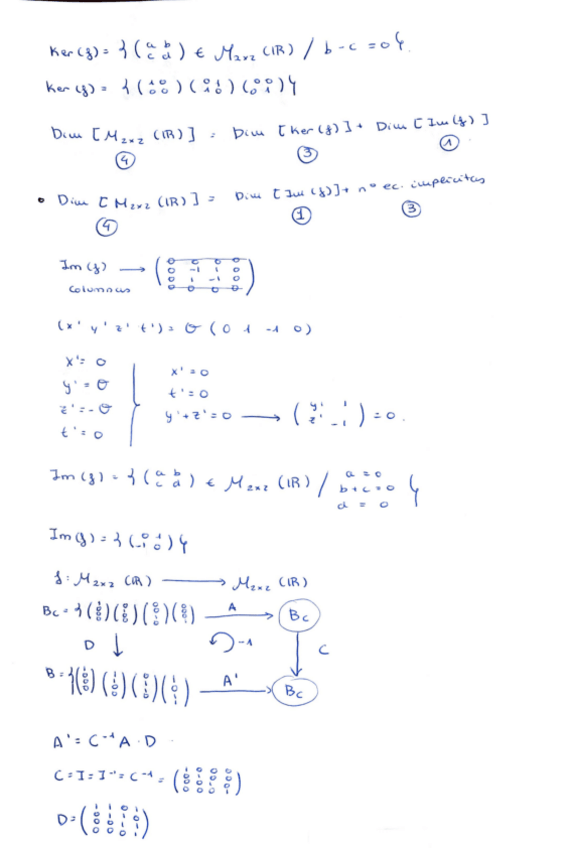 Ker(f) = { (a b / c d) ∈ M2x2 (IR) / b-c = 0 }
Ker(f) = { (1 0 / 0 0) (0 1 / 1 0) (0 0 / 0 1) }
Dim [M2x2 (IR)] = Dim [Ker(f)] + Dim [Im(f)]
④ ③ ①
• Dim [M2x2 (IR)] = Dim [Im(f)] + nº ec. implícitas
④ ① ③
Im(f) → (0 0 0 0 / 0 -1 1 0 / 0 1 -1 0 / 0 0 0 0)
columnas
(x' y' z' t') = σ (0 1 -1 0)
x' = 0
y' = σ
z' = -σ
t' = 0
x' = 0
t' = 0
y' + z' = 0 → (y' 1 / z' -1) = 0.
Im(f) = { (a b / c d) ∈ M2x2 (IR) / a = 0 b+c = 0 d = 0 }
Im(f) = { (0 1 / -1 0) }
f: M2x2 (IR) → M2x2 (IR)
Bc = { (1 0 0 0) (0 1 0 0) (0 0 1 0) (0 0 0 1) A → Bc
D ↓ -1 ↓ C
B = { (1 0 0 0) A' → Bc
A' = C⁻¹ A · D
C = I = I⁻¹ = C⁻¹ = (1 0 0 0 / 0 1 0 0 / 0 0 1 0 / 0 0 0 1)
D =